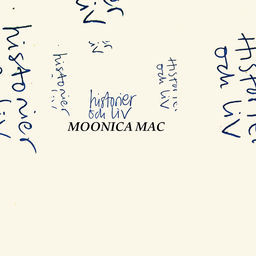 er
liv
historier
liv
liv
historier
liv
historier
och liv
historier
och liv
historier
och liv
MOONICA MAC